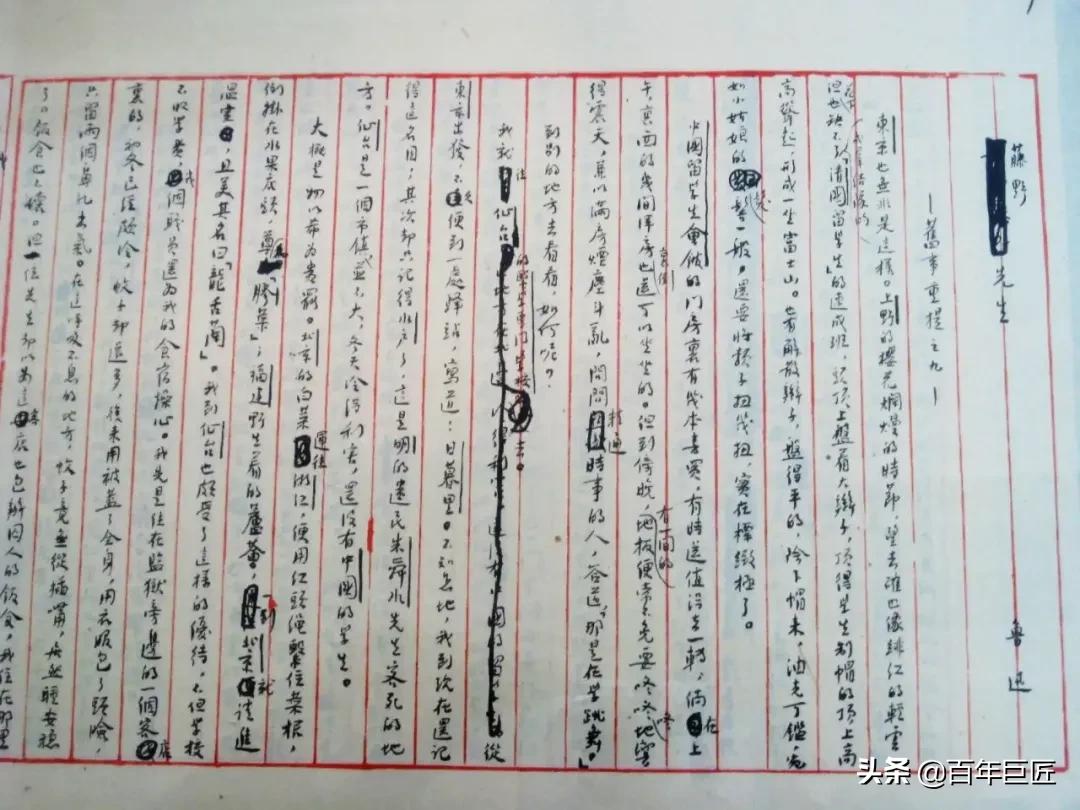 藤野先生
—舊事重提之九—
魯迅
東京也無非是這樣。上野的櫻花爛熳的時節，望去確也像緋紅的輕雲
但花下也缺不了成群結隊的「清國留學生」的速成班，頭頂上盤着大辮子，頂得學生制帽的頂上高
高聳起，形成一座富士山。也有解散辮子，盤得平的，除下帽來，油光可鑑，宛
如小姑娘的髮髻一般，還要將頸子扭幾扭，實在標緻極了。
中國留學生會館的門房裏有幾本書買，有時還值得去一轉，倘在上
午，裏面的幾間洋房裏倒也還可以坐坐的。但到傍晚，有一間的地板便常不免要咚咚咚地響
得震天，兼以滿房煙塵斗亂，問問精通時事的人，答道，「那是在學跳舞。」
到別的地方去看看，如何呢？
我就往仙台的醫學專門學校去。從
東京出發，不久便到一處驛站，寫道：日暮里。不知怎地，我到現在還記
得這名目。其次却只記得水户了，這是明的遺民朱舜水先生客死的地
方。仙台是一個市鎮，並不大，冬天冷得利害，還沒有中國的學生。
大概是物以希為貴罷。北京的白菜運往浙江，便用紅頭繩繫住菜根，
倒掛在水果店頭，尊為「膠菜」；福建野生着的蘆薈，一到北京就請進
溫室，且美其名曰「龍舌蘭」。我到仙台也頗受了這樣的優待，不但學校
不收學費，幾個職員還為我的食宿操心。我先是住在監獄旁邊的一個客店
裏的，初冬已經頗冷，蚊子却還多，後來用被蓋了全身，用衣服包了頭臉，
只留兩個鼻孔出氣。在這呼吸不息的地方，蚊子竟無從插嘴，居然睡安穩
了。飯食也不壞。但一位先生却以為這客店也包辦囚人的飯食，我住在那里
头条 @百年巨匠